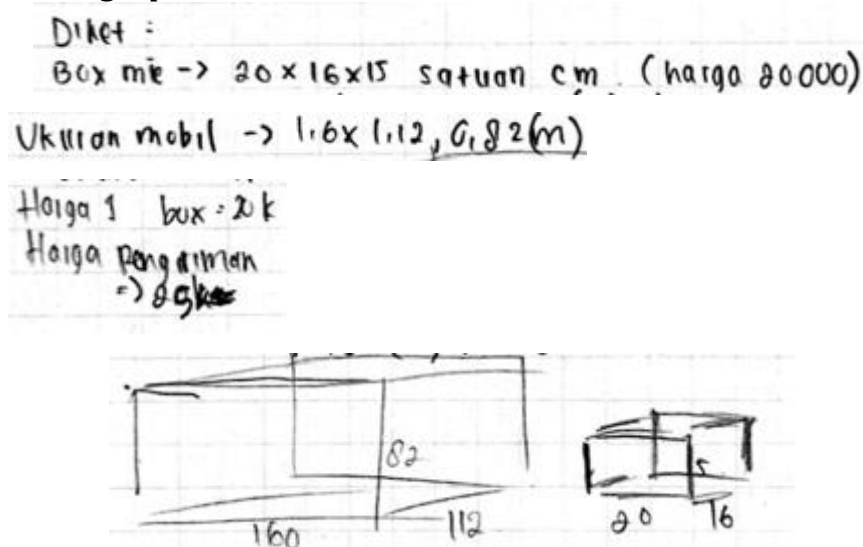 Diket :
Box mie -> 20 x 16 x 15 satuan cm (harga 20000)
Ukuran mobil -> 1,6 x 1,12, 0,82 (m)
Harga 1 box = 20 k
Harga pengiriman
=>
82
160
112
5
20
16